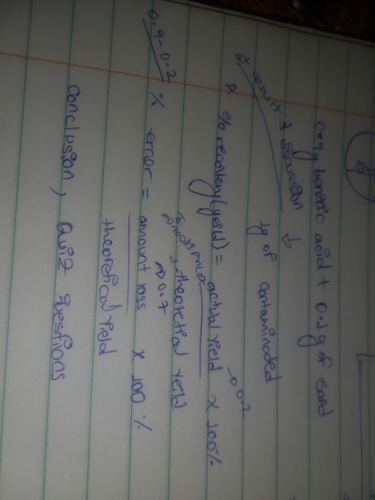 0.9g benzoic acid + 0.1g of sand
result & discussion ↓
1g of contaminated
% recovery (yield) = actual yield → 0.2 x 100%
theoretical yield
→ 0.9
0.9 - 0.2
% error = amount loss x 100 %
theoretical yield
Conclusion, Quiz questions